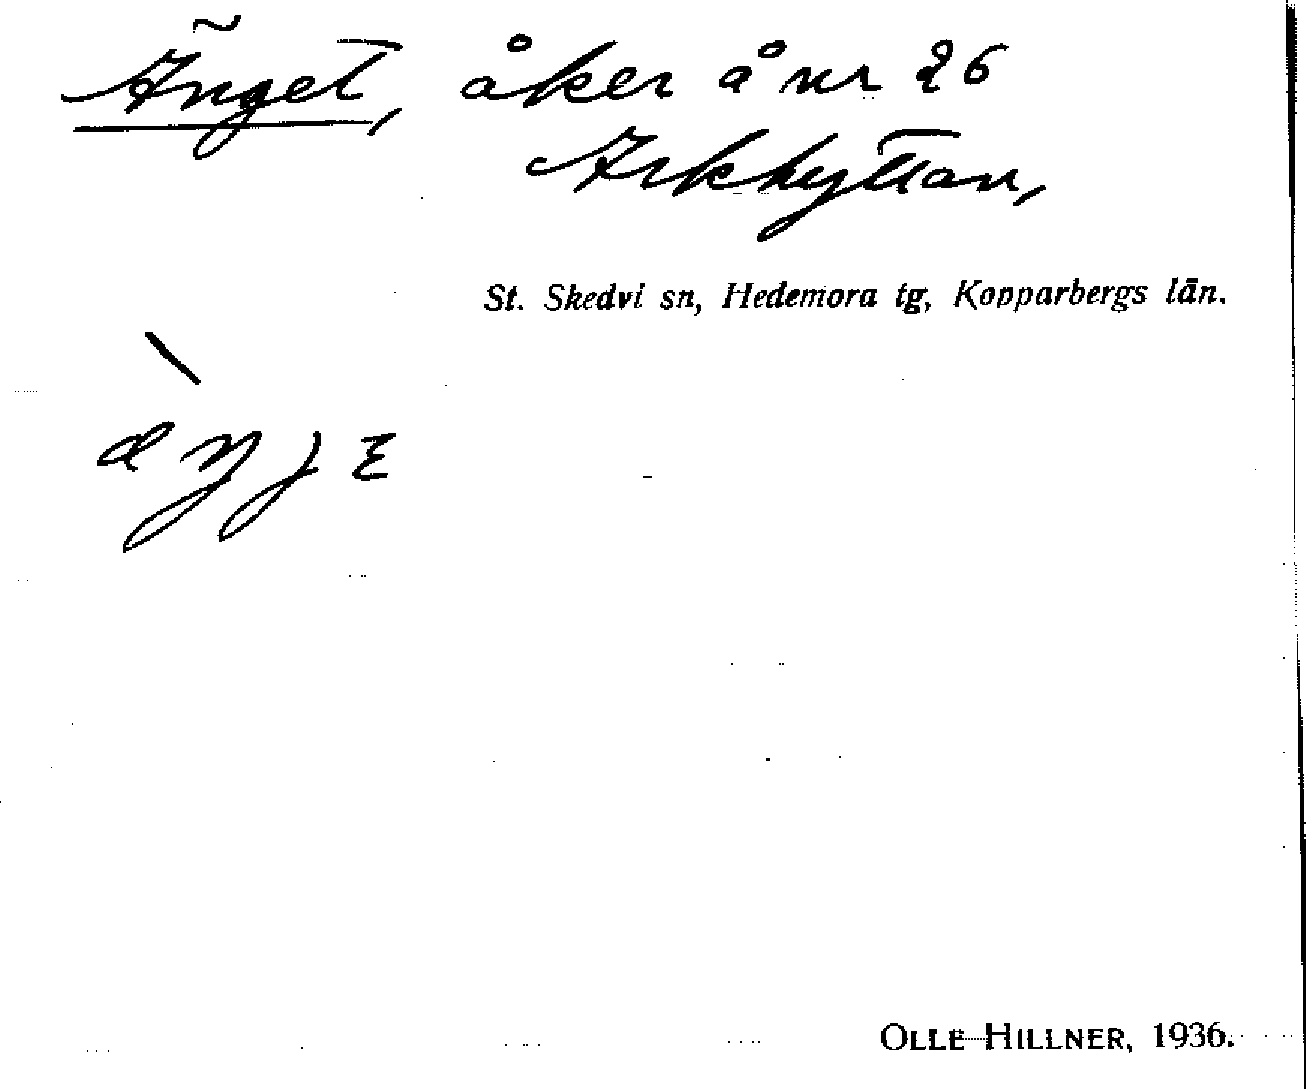 Änget, åker å nr 26
Arkhyttan,
St. Skedvi sn, Hedemora tg, Kopparbergs län.
OLLE HILLNER, 1936.